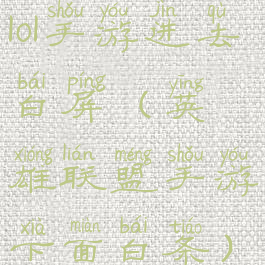 shǒu yóu jìn qù
lol手游进去
bái píng yīng
白屏（英
xióng lián méng shǒu yóu
雄联盟手游
xià miàn bái tiáo
下面白条）